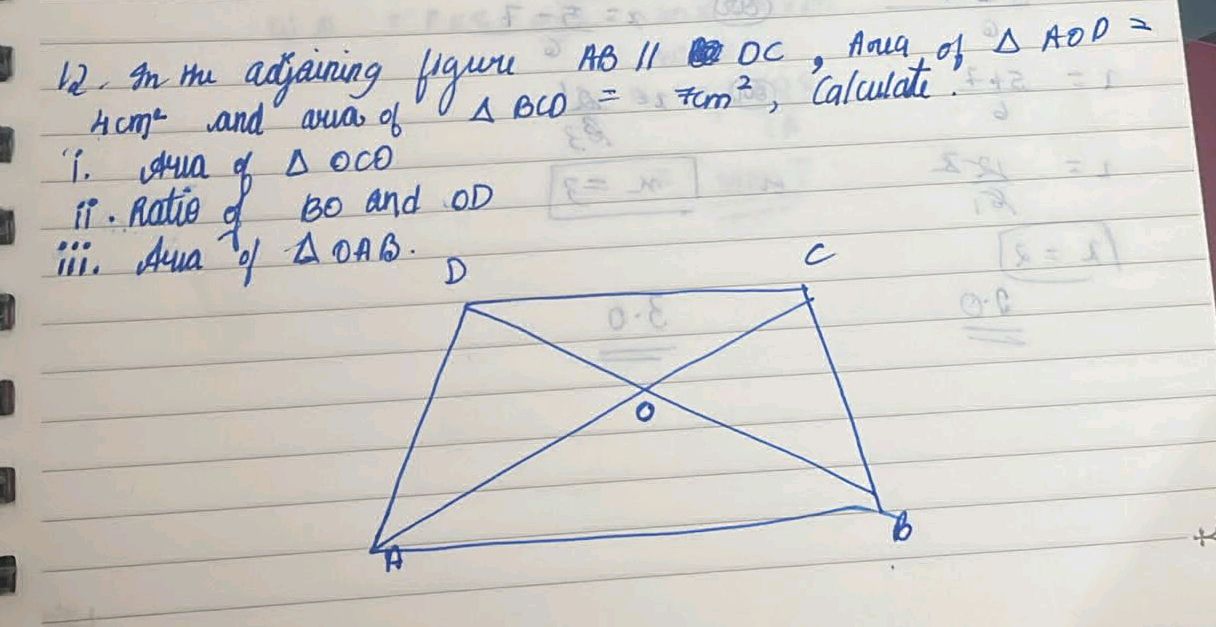 12. In the adjaining figure AB // DC , Area of Δ AOD =
4cm² and area of Δ BCD = 7cm², Calculate.
i. Area of Δ OCD
ii. Ratio of BO and OD
iii. Area of Δ OAB.
D C
O
A B